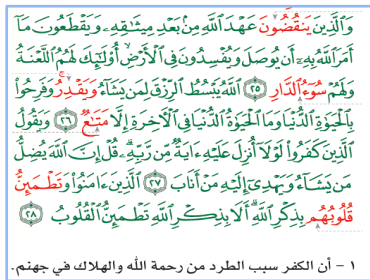 وَالَّذِينَ يَنقُضُونَ عَهْدَ اللَّهِ مِن بَعْدِ مِيثَاقِهِ وَيَقْطَعُونَ مَا
أَمَرَ اللَّهُ بِهِ أَن يُوصَلَ وَيُفْسِدُونَ فِي الْأَرْضِ أُولَٰئِكَ لَهُمُ اللَّعْنَةُ
وَلَهُمْ سُوءُ الدَّارِ ٢٥ اللَّهُ يَبْسُطُ الرِّزْقَ لِمَن يَشَاءُ وَيَقْدِرُ وَفَرِحُوا
بِالْحَيَوٰةِ الدُّنْيَا وَمَا الْحَيَوٰةُ الدُّنْيَا فِي الْآخِرَةِ إِلَّا مَتَٰعٌ ٢٦ وَيَقُولُ
الَّذِينَ كَفَرُوا لَوْلَا أُنزِلَ عَلَيْهِ ءَايَةٌ مِّن رَّبِّهِ قُلْ إِنَّ اللَّهَ يُضِلُّ
مَن يَشَاءُ وَيَهْدِي إِلَيْهِ مَنْ أَنَابَ ٢٧ الَّذِينَ ءَامَنُوا وَتَطْمَئِنُّ
قُلُوبُهُم بِذِكْرِ اللَّهِ أَلَا بِذِكْرِ اللَّهِ تَطْمَئِنُّ الْقُلُوبُ ٢٨
١ - أن الكفر سبب الطرد من رحمة الله والهلاك في جهنم.